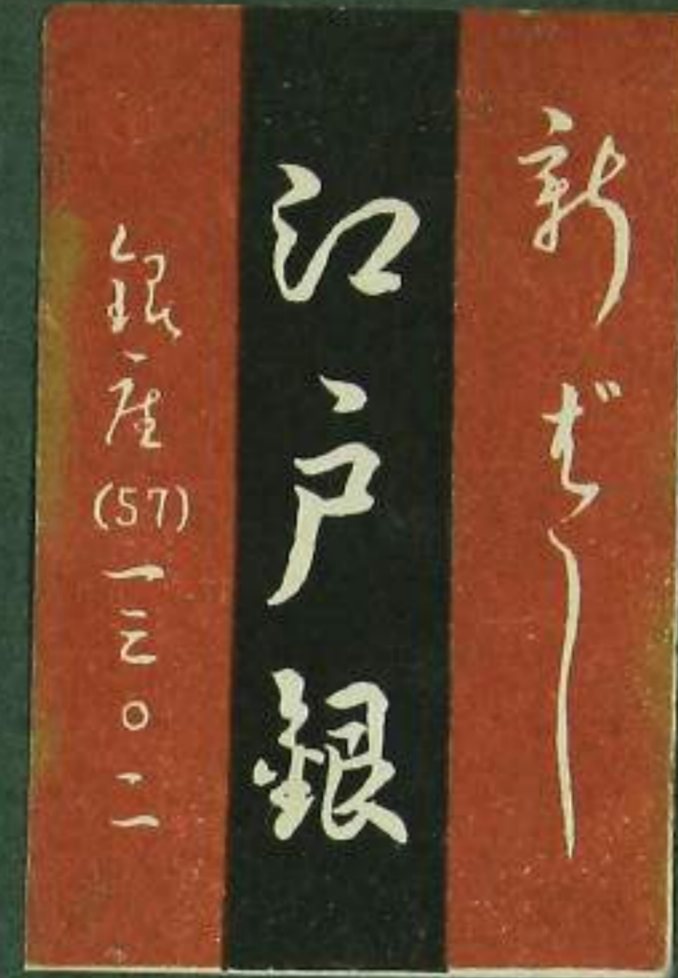 新ばし
江戸銀
銀座(57)一三〇二